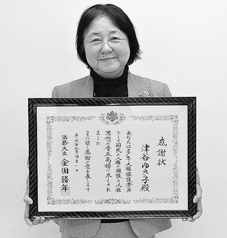 感謝状
津谷ゆき子殿
あなたは多年人権擁護委員
として国民の人権の擁護と人権
思想の普及高揚に尽されま
した
よって深く感謝の意を表します
法務大臣 金田勝年